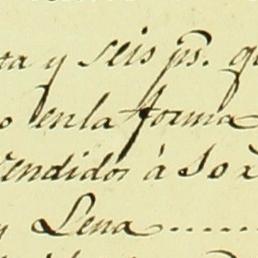 ta y seis ps. q
o en la forma
endidos à so x
y Lena ......